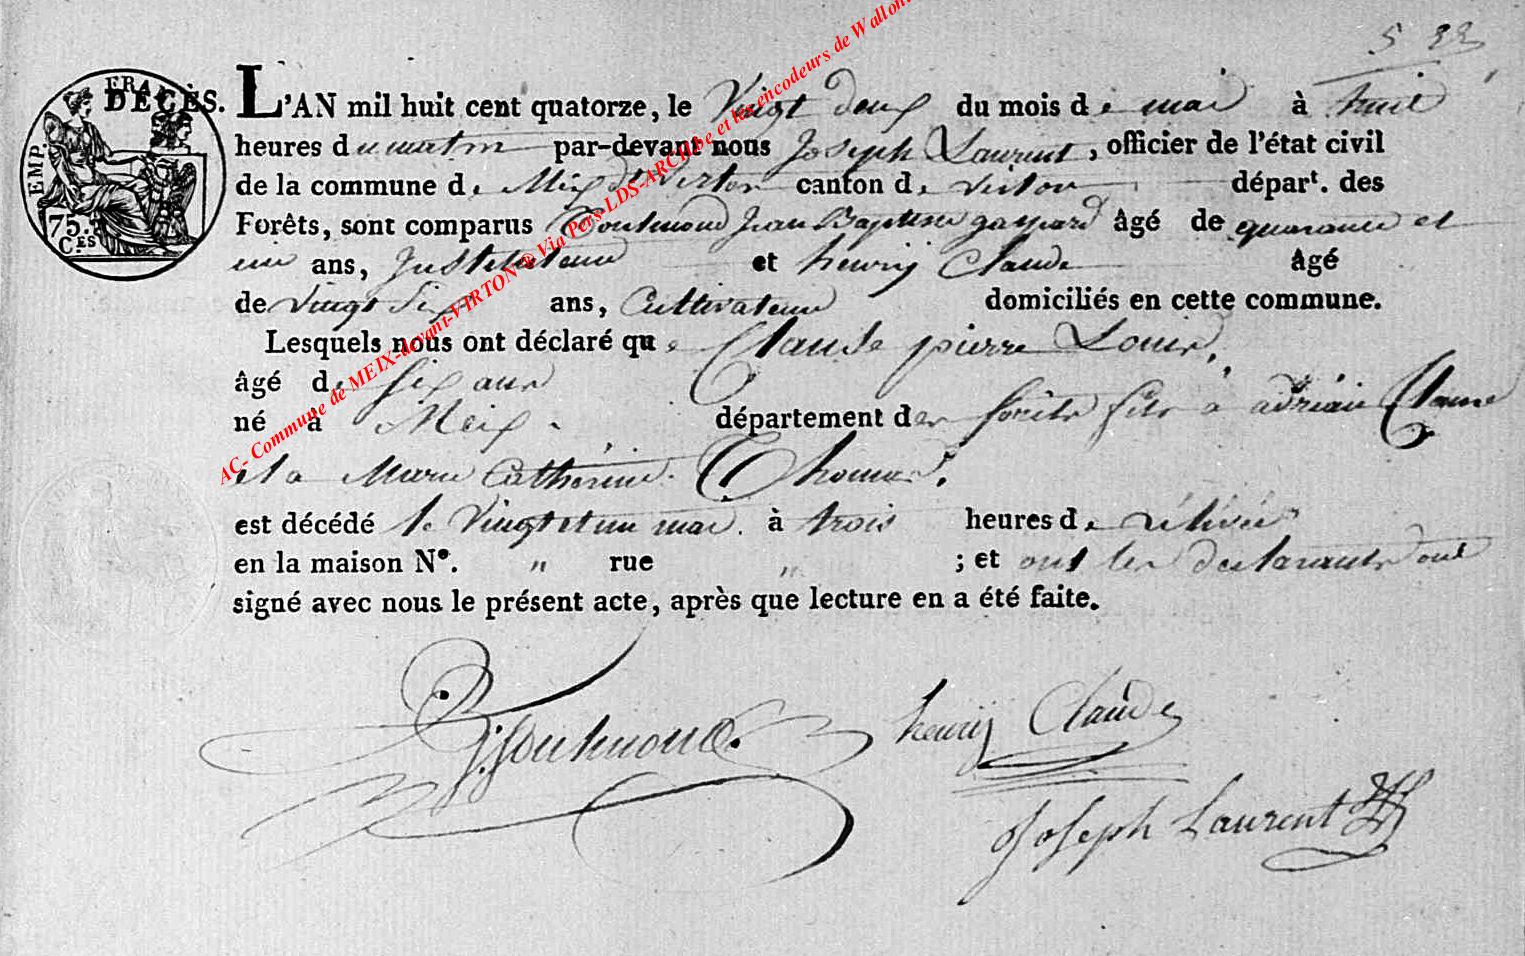 5 33
FRA
DÉCÈS. L'AN mil huit cent quatorze, le Vingt deux du mois de mai à huit
heures du matin par-devant nous Joseph Laurent, officier de l'état civil
TEMP.
de la commune de Meix dt Virton canton de Virton départ. des
75. Ces
Forêts, sont comparus Goulmond Jean Baptiste gaspard âgé de quarante et
un ans, Instituteur et henrij Claude âgé
de vingt six ans, Cultivateur domiciliés en cette commune.
Lesquels nous ont déclaré que Claude pierre Louis,
âgé de six ans
né à Meix. département des forêts fils a adrian Claude
et a Marie Catherine Thomas,
est décédé le Vingt et un mai à trois heures de rélévée
en la maison N°. " rue " ; et ont les declarants ont
signé avec nous le présent acte, après que lecture en a été faite.
Goulmond.
henrij Claude
Joseph Laurent
AC- Commune de MEIX-devant-VIRTON ® Via Pers-LDS-ARCH-be et les encodeurs de Wallon